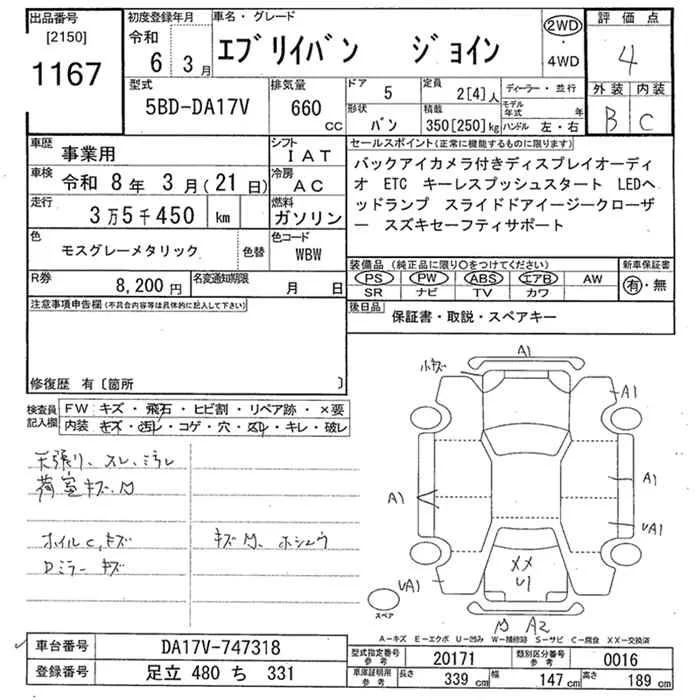 出品番号
[2150]
1167
初度登録年月
令和
6年 3月
車名・グレード
エブリイバン ジョイン
2WD
・
4WD
評価点
4
外装 内装
B C
型式
5BD-DA17V
排気量
660
CC
ドア
5
定員
2[4]人
ディーラー・並行
形状
バン
積載
350[250]kg
モデル年式 年
ハンドル 左・右
車歴
事業用
シフト
IAT
車検
令和 8年 3月(21日)
冷房
AC
走行
3万5千450 km
燃料
ガソリン
色
モスグレーメタリック
色替
色コード
WBW
R券
8,200円
名変通知期限
月 日
セールスポイント(正常に機能するものに限ります)
バックアイカメラ付きディスプレイオーディ
オ ETC キーレスプッシュスタート LEDヘ
ッドランプ スライドドアイージークローザ
ー スズキセーフティサポート
装備品 (純正品に限り○をつけてください)
PS PW ABS エアB AW
SR ナビ TV カワ
新車保証書
有・無
後日品
保証書・取説・スペアキー
注意事項申告欄(不具合内容等は具体的に記入して下さい)
修復歴 有〔箇所 〕
検査員
記入欄
FW キズ・飛石・ヒビ割・リペア跡・×要
内装 キズ・汚レ・コゲ・穴・スレ・キレ・破レ
天張り、スレ、ミラレ
荷室キズ、凹
ホイルC、キズ
Dミラー キズ
キズ凹、ホシュウ
A1
小キズ
A1
A1
A1
UA1
UA1
XX
U1
凹 A2
スペア
A-キズ E-エクボ U-凹み W-補修跡 S-サビ C-腐食 XX-交換済
車台番号
DA17V-747318
登録番号
足立 480 ち 331
型式指定番号
参考
20171
類別区分番号
参考
0016
車庫証明用
参考
長さ
339 cm
幅
147 cm
高さ
189 cm